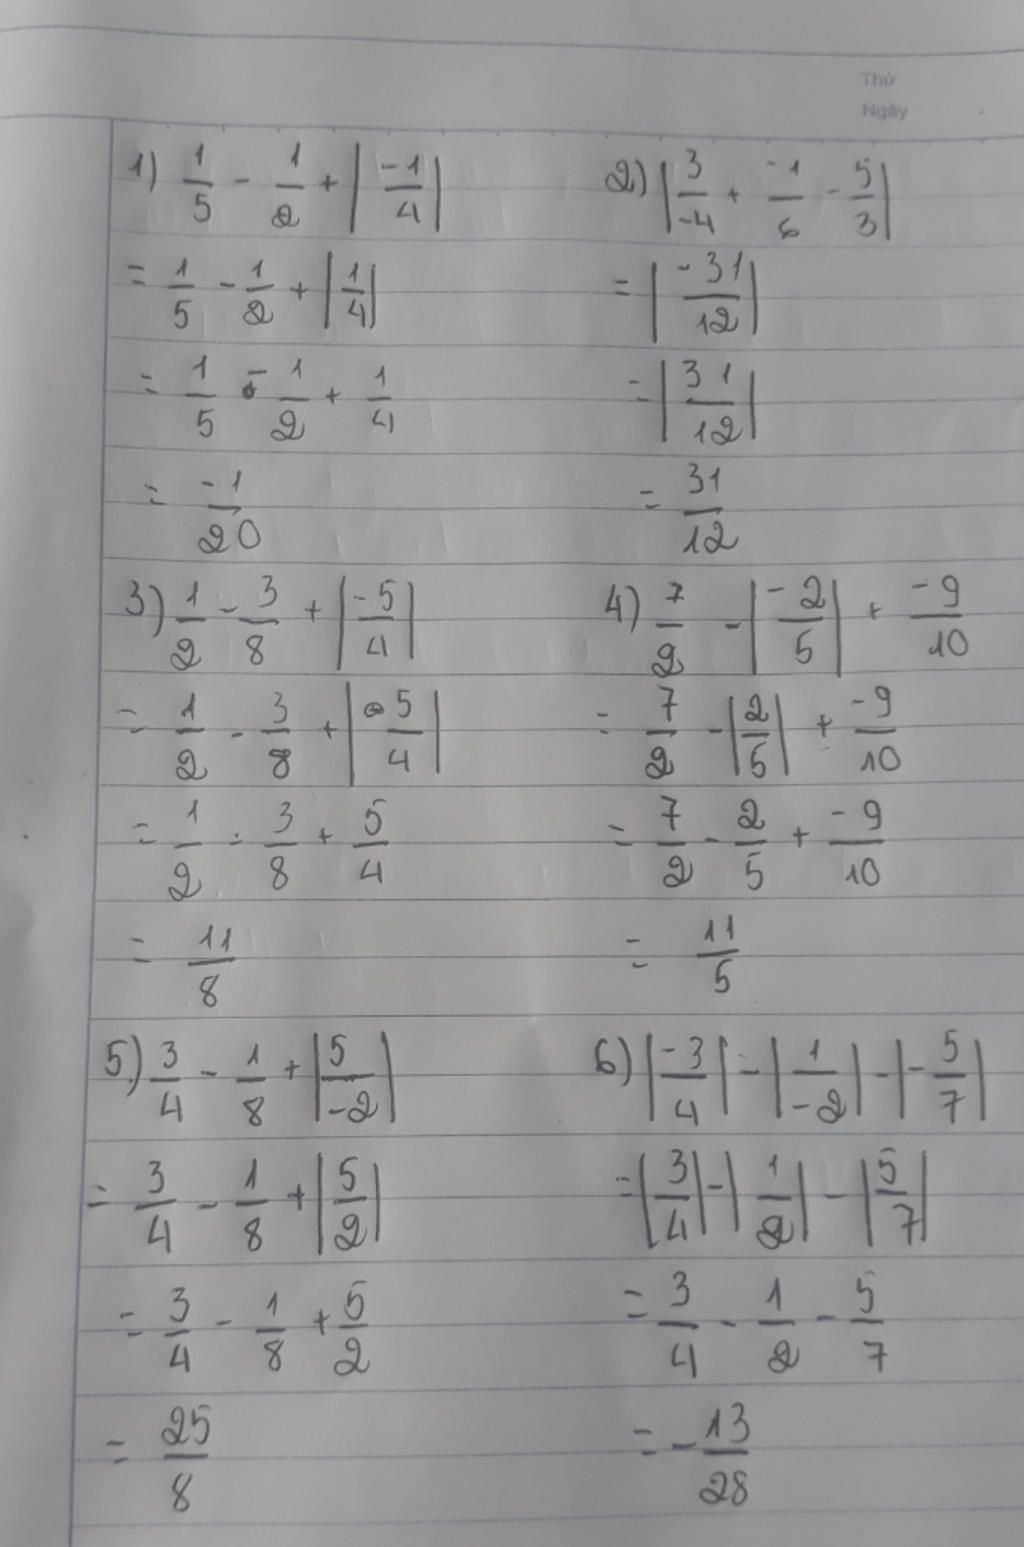 Thứ
Ngày
1) 1/5 - 1/2 + |-1/4|
= 1/5 - 1/2 + |1/4|
= 1/5 - 1/2 + 1/4
= -1/20
2) |3/-4 + -1/6 - 5/3|
= |-31/12|
= |31/12|
= 31/12
3) 1/2 - 3/8 + |-5/4|
= 1/2 - 3/8 + |5/4|
= 1/2 - 3/8 + 5/4
= 11/8
4) 7/2 - |-2/5| + -9/10
= 7/2 - |2/5| + -9/10
= 7/2 - 2/5 + -9/10
= 11/5
5) 3/4 - 1/8 + |5/-2|
= 3/4 - 1/8 + |5/2|
= 3/4 - 1/8 + 5/2
= 25/8
6) |-3/4| - |1/-2| - |-5/7|
= |3/4| - |1/2| - |5/7|
= 3/4 - 1/2 - 5/7
= -13/28